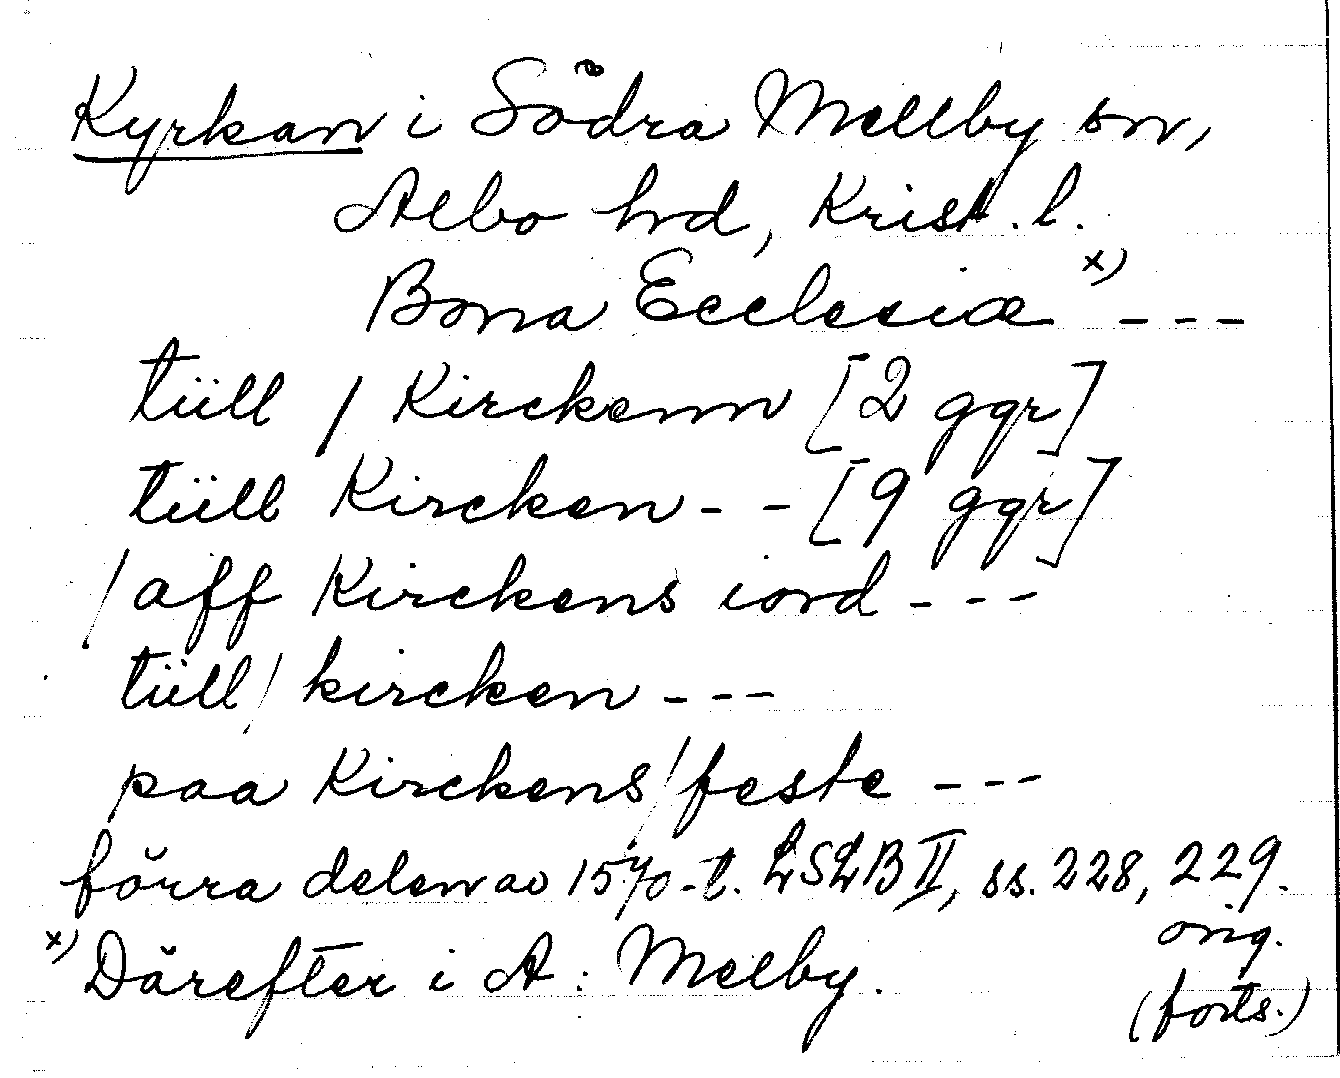 Kyrkan i Södra Mellby sn,
Albo hrd, Krist. l.
Bona Ecclesiæ x) - - -
tiill / Kirckenn [2 ggr]
tiill Kircken - - [9 ggr]
/ aff Kirckens iord - - -
tiill / kircken - - -
paa Kirckens / feste - - -
förra delen av 1570-t. LSLB II, ss. 228, 229.
orig.
x) Därefter i A: Melby.
(forts.)